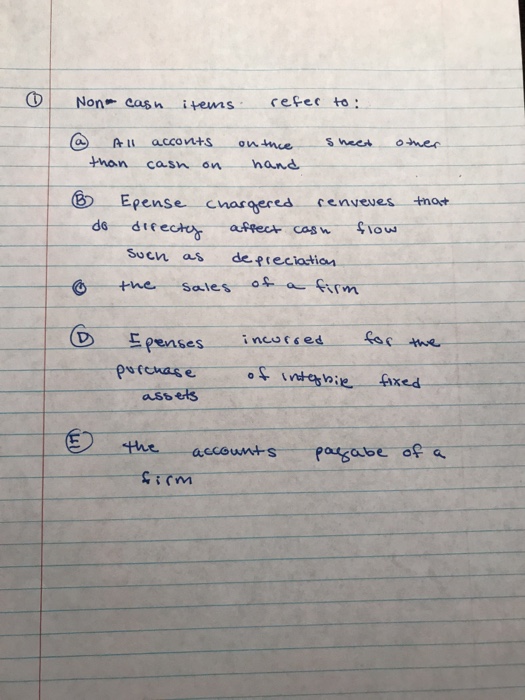 ① Non- cash items refer to:
ⓐ All acconts on thce sheet other
than cash on hand
Ⓑ Epense chargered renveves that
do directy affect cash flow
such as depreciation
Ⓒ the sales of a firm
Ⓓ Epenses incurred for the
purchase of integbile fixed
assets
Ⓔ the accounts payabe of a
firm